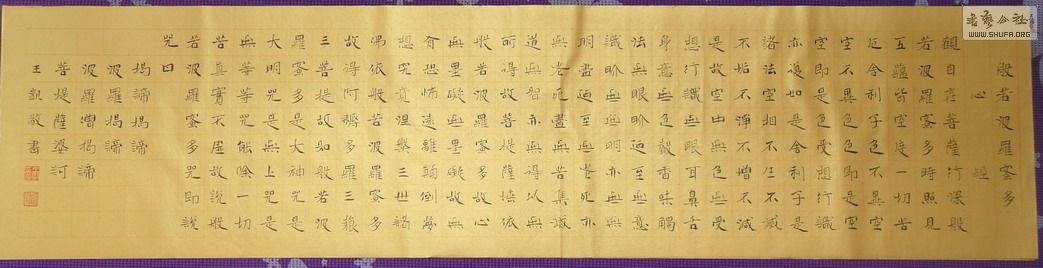 般若波羅蜜多
心經
觀自在菩薩行深般
若波羅蜜多時照見
五蘊皆空度一切苦
厄舍利子色不異空
空不異色色即是空
空即是色受想行識
亦復如是舍利子是
諸法空相不生不滅
不垢不淨不增不減
是故空中無色無受
想行識無眼耳鼻舌
身意無色聲香味觸
法無眼界乃至無意
識界無無明亦無無
明盡乃至無老死亦
無老死盡無苦集滅
道無智亦無得以無
所得故菩提薩埵依
般若波羅蜜多故心
無罣礙無罣礙故無
有恐怖遠離顛倒夢
想究竟涅槃三世諸
佛依般若波羅蜜多
故得阿耨多羅三藐
三菩提故知般若波
羅蜜多是大神咒是
大明咒是無上咒是
無等等咒能除一切
苦真實不虛故說般
若波羅蜜多咒即說
咒曰
揭諦揭諦
波羅揭諦
波羅僧揭諦
菩提薩婆訶
王凱敬書
书艺公社
WWW.SHUFA.ORG